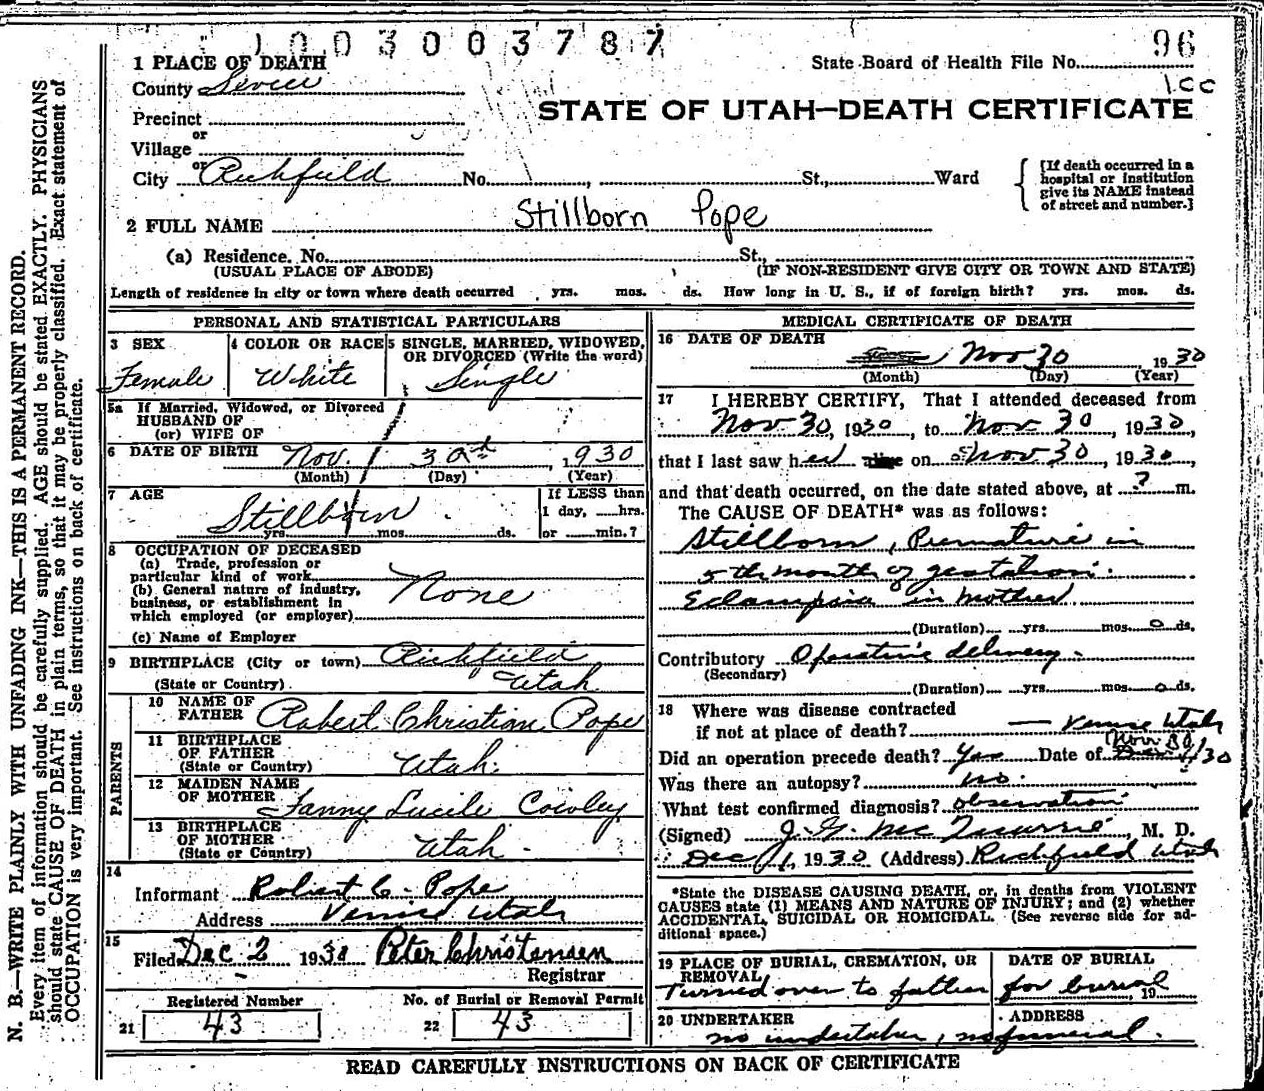 1003003787
96
1 PLACE OF DEATH
State Board of Health File No.
1cc
County Sevier
STATE OF UTAH—DEATH CERTIFICATE
Precinct
or
Village
or
City Richfield No. , St., Ward
[If death occurred in a hospital or institution give its NAME instead of street and number.]
2 FULL NAME Stillborn Pope
(a) Residence. No. St.,
(USUAL PLACE OF ABODE) (IF NON-RESIDENT GIVE CITY OR TOWN AND STATE)
Length of residence in city or town where death occurred yrs. mos. ds. How long in U. S., if of foreign birth? yrs. mos. ds.
PERSONAL AND STATISTICAL PARTICULARS
3 SEX 4 COLOR OR RACE 5 SINGLE, MARRIED, WIDOWED, OR DIVORCED (Write the word)
Female White Single
5a If Married, Widowed, or Divorced
HUSBAND OF
(or) WIFE OF
6 DATE OF BIRTH Nov. 30th, 1930
(Month) (Day) (Year)
7 AGE
Stillborn
yrs. mos. ds.
If LESS than
1 day, hrs.
or min.?
8 OCCUPATION OF DECEASED
(a) Trade, profession or
particular kind of work
(b) General nature of industry,
business, or establishment in
which employed (or employer)
None
(c) Name of Employer
9 BIRTHPLACE (City or town) Richfield
(State or Country). Utah
PARENTS
10 NAME OF
FATHER Robert Christian Pope
11 BIRTHPLACE
OF FATHER
(State or Country) Utah.
12 MAIDEN NAME
OF MOTHER Fanny Lucile Cowley
13 BIRTHPLACE
OF MOTHER
(State or Country) Utah.
14
Informant Robert C. Pope
Address Venice Utah
15
Filed Dec 2 1930 Peter Christensen
Registrar
Registered Number No. of Burial or Removal Permit
21 43 22 43
MEDICAL CERTIFICATE OF DEATH
16 DATE OF DEATH
Nov 30 1930
(Month) (Day) (Year)
17 I HEREBY CERTIFY, That I attended deceased from
Nov 30, 1930, to Nov 30, 1930,
that I last saw her alive on Nov 30, 1930,
and that death occurred, on the date stated above, at ? m.
The CAUSE OF DEATH* was as follows:
Stillborn, Premature in
5th month of gestation.
Eclampsia in mother
(Duration) yrs. mos. 0 ds.
Contributory Operative delivery.
(Secondary)
(Duration) yrs. mos. 0 ds.
18 Where was disease contracted
if not at place of death? — Venice Utah
Did an operation precede death? Yes Date of Nov 30/30
Was there an autopsy? no.
What test confirmed diagnosis? observation
(Signed) J. G. , M. D.
Dec 1, 1930 (Address) Richfield Utah
*State the DISEASE CAUSING DEATH, or, in deaths from VIOLENT
CAUSES state (1) MEANS AND NATURE OF INJURY; and (2) whether
ACCIDENTAL, SUICIDAL OR HOMICIDAL. (See reverse side for ad-
ditional space.)
19 PLACE OF BURIAL, CREMATION, OR REMOVAL DATE OF BURIAL
Turned over to father for burial, 19
20 UNDERTAKER ADDRESS
no undertaker, no funeral.
READ CAREFULLY INSTRUCTIONS ON BACK OF CERTIFICATE
N. B.—WRITE PLAINLY WITH UNFADING INK—THIS IS A PERMANENT RECORD.
Every item of information should be carefully supplied. AGE should be stated EXACTLY. PHYSICIANS
should state CAUSE OF DEATH in plain terms, so that it may be properly classified. Exact statement of
OCCUPATION is very important. See instructions on back of certificate.